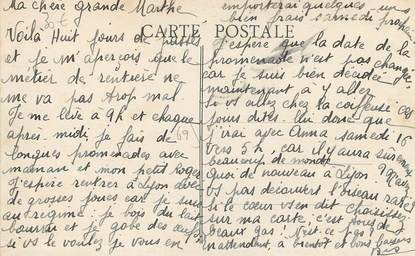 Ma chère grande Marthe
CARTE POSTALE
Voilà Huit jours de passés
et je m'aperçois que le
métier de rentière ne
me va pas trop mal.
Je me lève à 9h et chaque
après-midi je fais de
longues promenades avec
maman et mon petit Roger
J'espère rentrer à Lyon avec
de grosses joues car je suis
au régime : je bois du lait
bourru et je gobe des œufs
si vs le voulez je vous en
emporterai quelques-uns
bien frais samedi prochain
J'espère que la date de la
promenade n'est pas changée
car je suis bien décidée
maintenant à y aller
Si vs allez chez la coiffeuse
dites-lui donc que
j'irai avec Anna samedi 16
vers 5h, car il y aura sûrement
beaucoup de monde
Quoi de nouveau à Lyon ?
vs pas découvert l'oiseau rare
si le cœur vs en dit choisissez
sur ma carte, c'est tous de
beaux gas : N'est ce pas !
En attendant, à bientôt et bons baisers
69